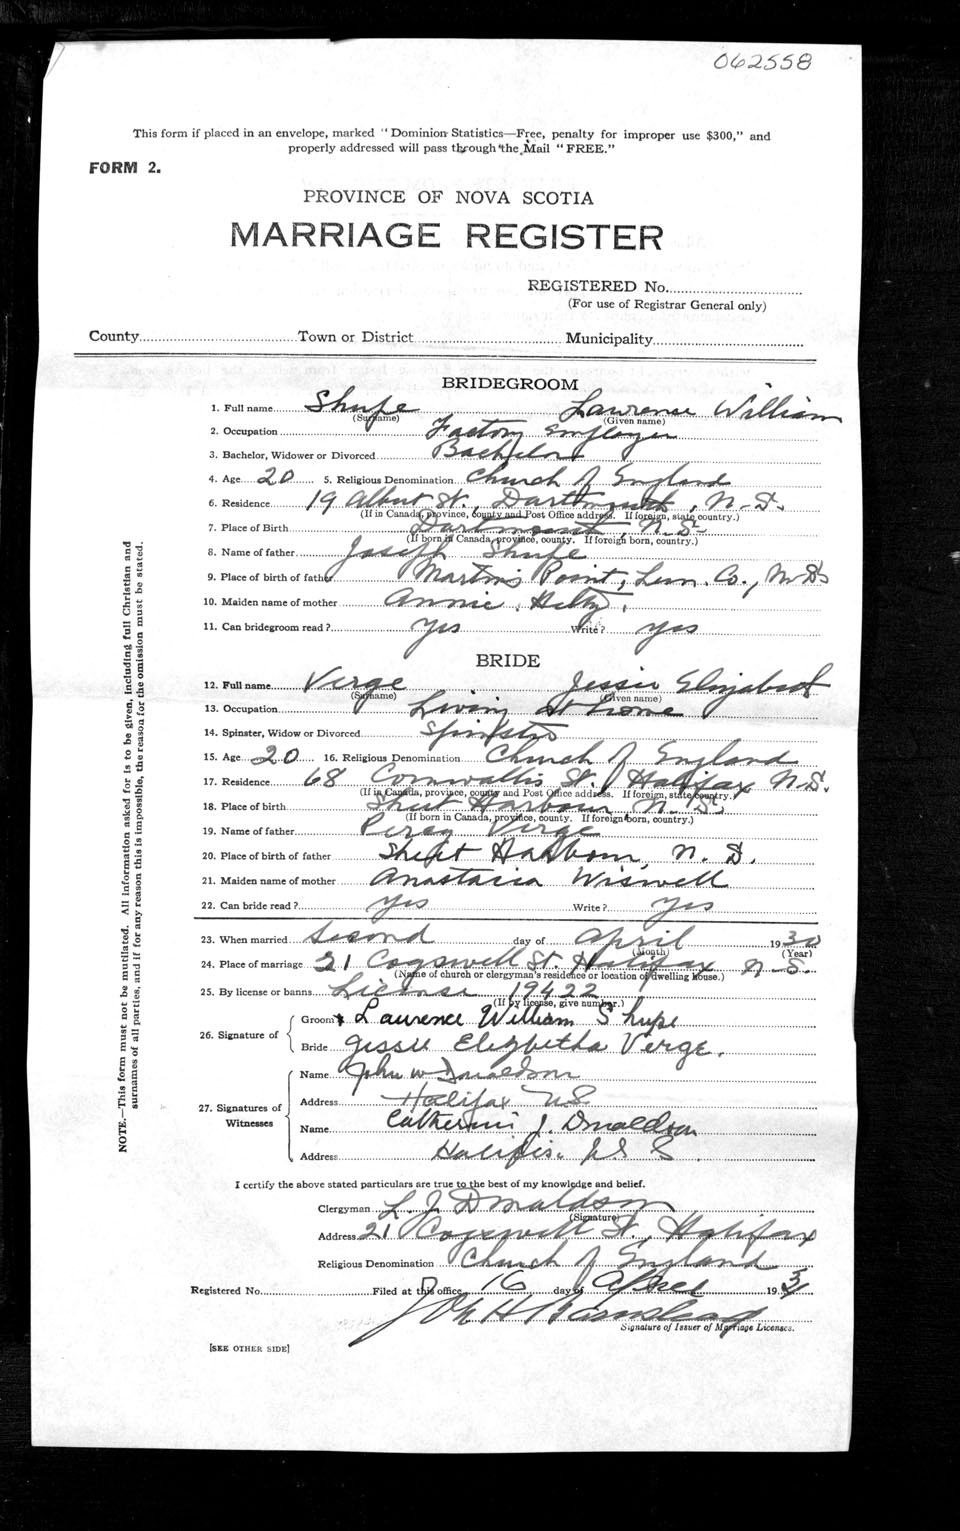 062558
This form if placed in an envelope, marked "Dominion Statistics—Free, penalty for improper use $300," and
properly addressed will pass through the Mail "FREE."
FORM 2.
PROVINCE OF NOVA SCOTIA
MARRIAGE REGISTER
REGISTERED No.
(For use of Registrar General only)
County Town or District Municipality
BRIDEGROOM
1. Full name Shupe Lawrence William
(Surname) (Given name)
2. Occupation Factory employee
3. Bachelor, Widower or Divorced Bachelor
4. Age 20 5. Religious Denomination Church of England
6. Residence 19 Albert St., Dartmouth, N.S.
(If in Canada, province, county and Post Office address. If foreign, state country.)
7. Place of Birth Dartmouth, N.S.
(If born in Canada, province, county. If foreign born, country.)
8. Name of father Joseph Shupe
9. Place of birth of father Martins Point, Lun. Co., N.S.
10. Maiden name of mother Annie Hiltz
11. Can bridegroom read? yes Write? yes
BRIDE
12. Full name Verge Jessie Elizabeth
(Surname) (Given name)
13. Occupation Living at home
14. Spinster, Widow or Divorced Spinster
15. Age 20 16. Religious Denomination Church of England
17. Residence 68 Cornwallis St. Halifax N.S.
(If in Canada, province, county and Post Office address. If foreign, state country.)
18. Place of birth Sheet Harbour N.S.
(If born in Canada, province, county. If foreign born, country.)
19. Name of father Percy Verge
20. Place of birth of father Sheet Harbour, N.S.
21. Maiden name of mother Anastacia Wiswell
22. Can bride read? yes Write? yes
23. When married Second day of April 1930
(Month) (Year)
24. Place of marriage 21 Cogswell St. Halifax N.S.
(Name of church or clergyman's residence or location of dwelling house.)
25. By license or banns License 19422
(If by license, give number.)
26. Signature of
Groom Lawrence William Shupe
Bride Jessie Elizbetha Verge.
27. Signatures of Witnesses
Name John W Donaldson
Address Halifax NS
Name Catherine J. Donaldson
Address N S
I certify the above stated particulars are true to the best of my knowledge and belief.
Clergyman L. J. Donaldson
(Signature)
Address 21 Cogswell St., Halifax
Religious Denomination Church of England
Registered No. Filed at this office 16 day of April 193
Signature of Issuer of Marriage Licenses.
[SEE OTHER SIDE]
NOTE.—This form must not be mutilated. All information asked for is to be given, including full Christian and
surnames of all parties, and if for any reason this is impossible, the reason for the omission must be stated.